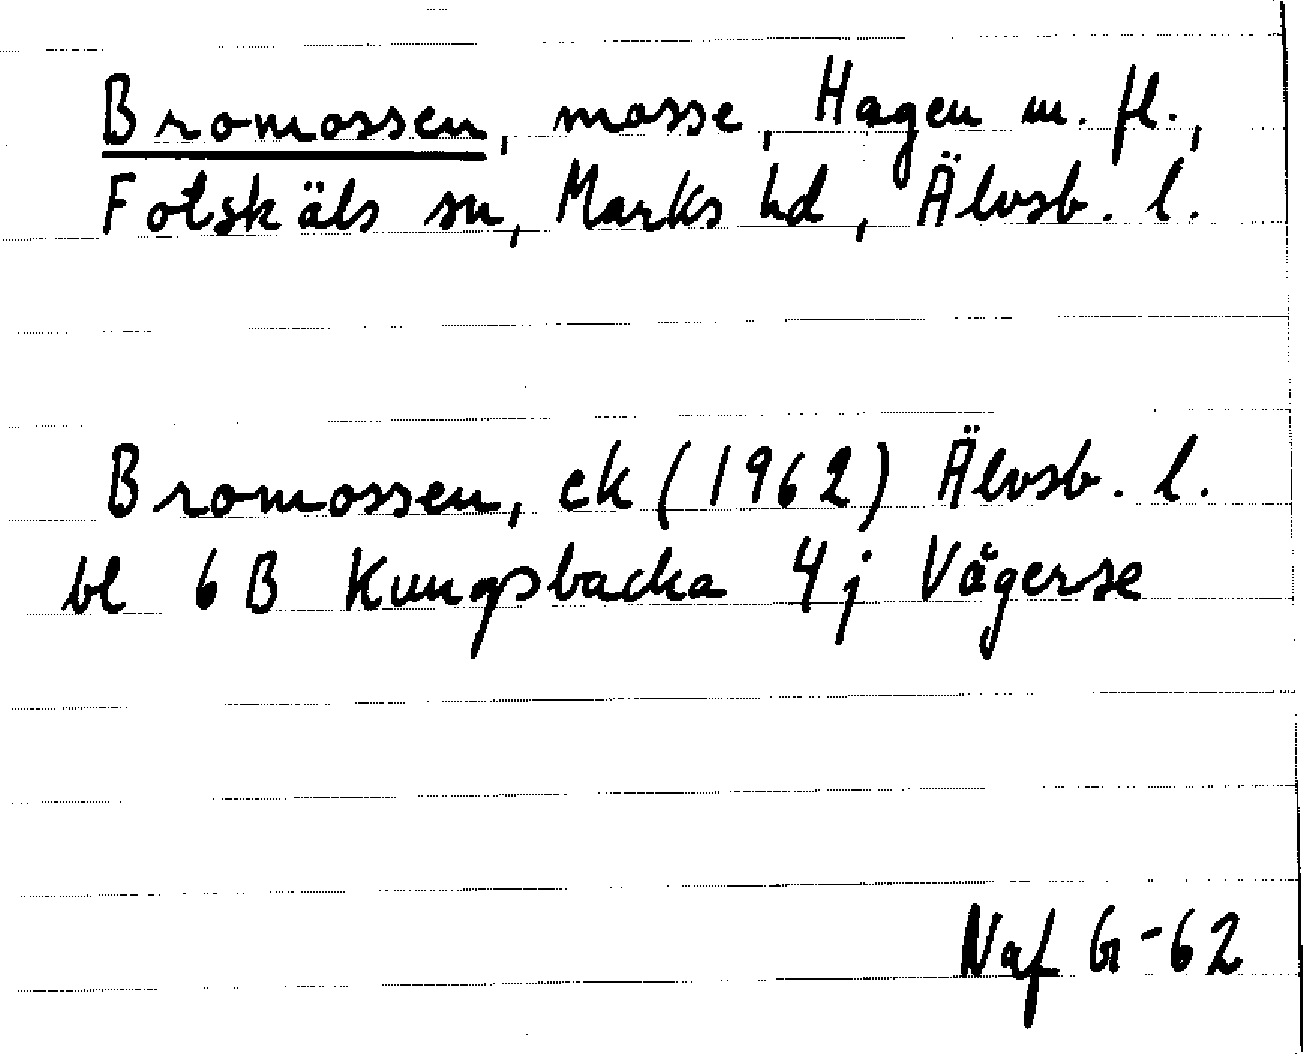 Bromossen, mosse, Hagen m. fl.,
Fotskäls sn, Marks hd, Älvsb. l.
Bromossen, ek (1962) Älvsb. l.
bl 6 B Kungsbacka 4 j Vågerse
Naf G-62